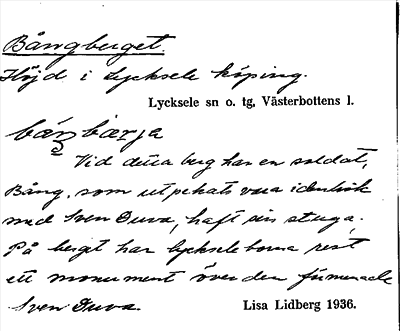 Bångberget.
Höjd i Lycksele köping.
Lycksele sn o. tg, Västerbottens l.
bárjja
Vid detta berg har en soldat,
Bång, som utpekats vara identisk
med Sven Duva, haft sin stuga.
På berget har lyckseleborna rest
ett monument över den förmenade
Sven Duva.
Lisa Lidberg 1936.